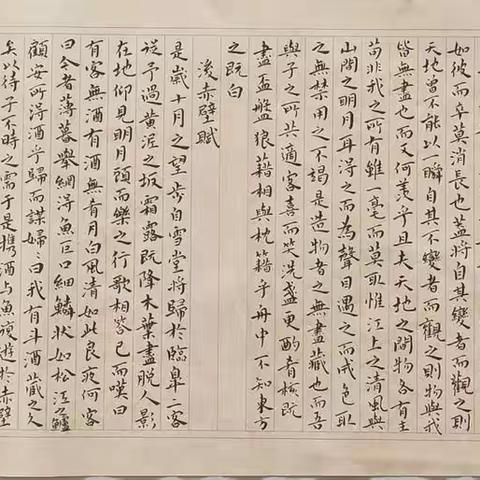 如彼而卒莫消長也蓋將自其變者而觀之則
天地曾不能以一瞬自其不變者而觀之則物與我
皆無盡也而又何羨乎且夫天地之間物各有主
苟非我之所有雖一毫而莫取惟江上之清風與
山間之明月耳得之而為聲目遇之而成色取
之無禁用之不竭是造物者之無盡藏也而吾
與子之所共適客喜而笑洗盞更酌肴核既
盡盃盤狼藉相與枕藉乎舟中不知東方
之既白
後赤壁賦
是歲十月之望步自雪堂將歸於臨皋二客
從予過黃泥之坂霜露既降木葉盡脫人影
在地仰見明月顧而樂之行歌相答已而嘆曰
有客無酒有酒無肴月白風清如此良夜何客
曰今者薄暮舉網得魚巨口細鱗狀如松江之鱸
顧安所得酒乎歸而謀婦〻曰我有斗酒藏之久
矣以待子不時之需于是攜酒與魚復遊於赤壁